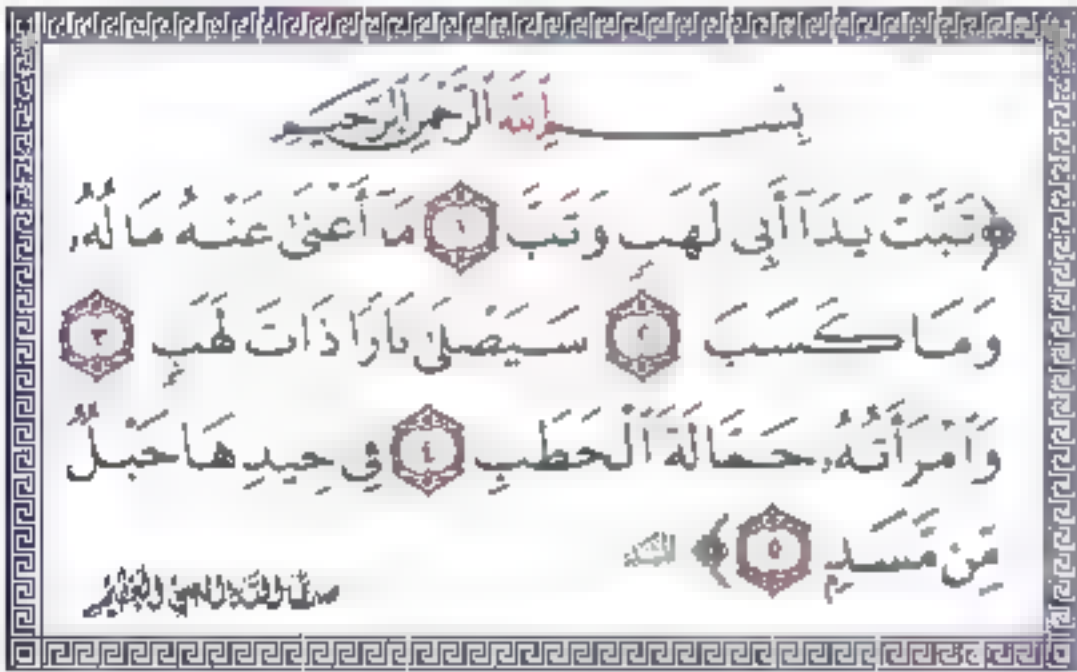 بِسْمِ اللَّهِ الرَّحْمَٰنِ الرَّحِيمِ
﴿ تَبَّتْ يَدَا أَبِي لَهَبٍ وَتَبَّ ١ مَا أَغْنَىٰ عَنْهُ مَالُهُ
وَمَا كَسَبَ ٢ سَيَصْلَىٰ نَارًا ذَاتَ لَهَبٍ ٣
وَامْرَأَتُهُ حَمَّالَةَ الْحَطَبِ ٤ فِي جِيدِهَا حَبْلٌ
مِّن مَّسَدٍ ٥ ﴾ المسد
صدق الله العلي العظيم